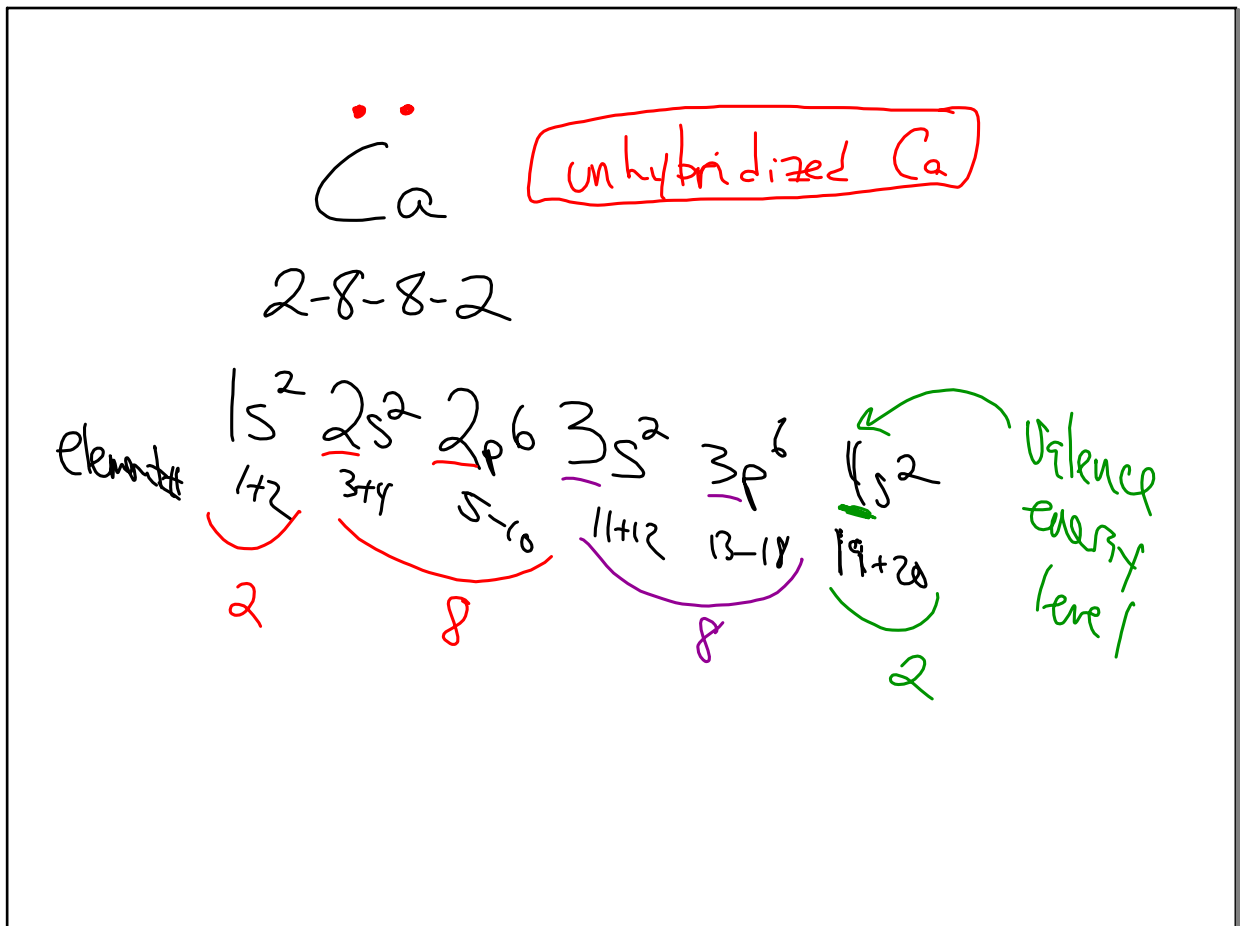 Ca
unhybridized Ca
2-8-8-2
1s² 2s² 2p6 3s² 3p⁶ 4s2
element#
1+2 3+4 5-10 11+12 13-18 19+20
2 8 8 2
Valence
energy
level